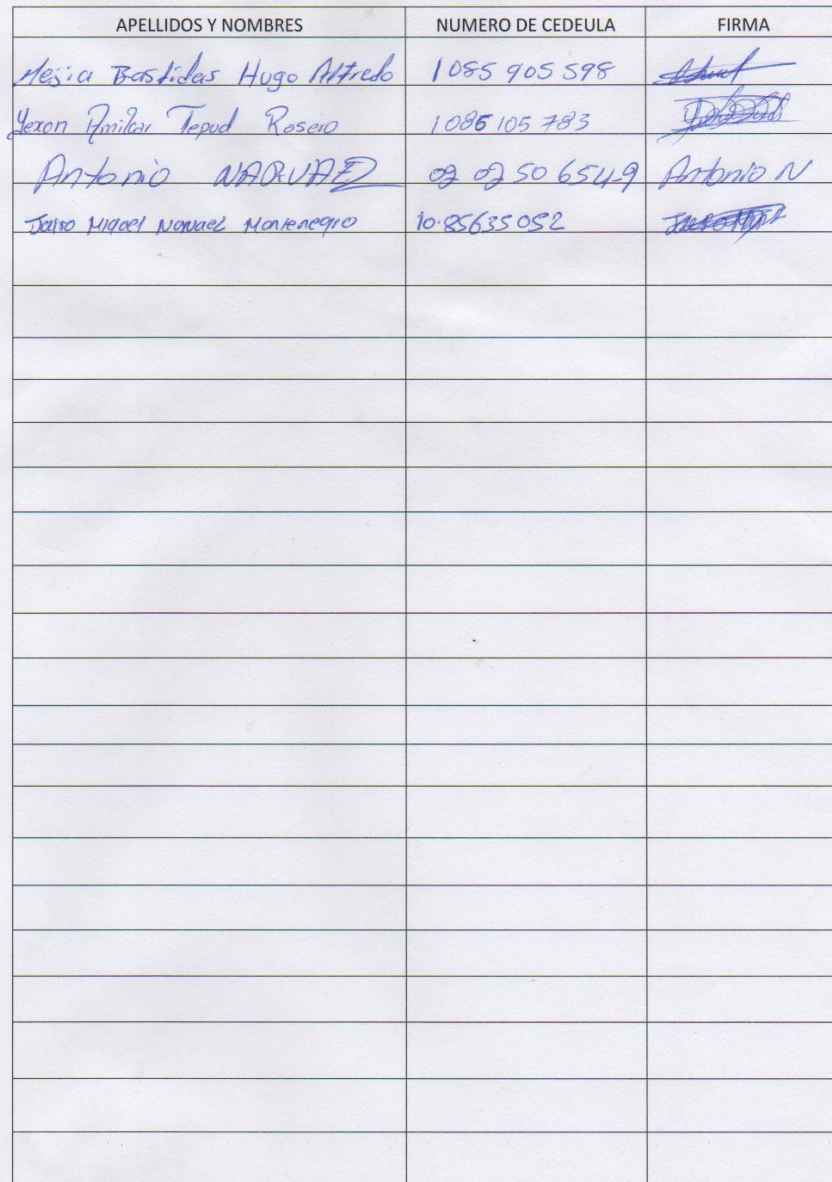 APELLIDOS Y NOMBRES NUMERO DE CEDEULA FIRMA
Mejia Bastidas Hugo Alfredo 1085 905 598
Yexon Amilcar Tepud Rosero 1086 105 783
Antonio NARVAEZ 02 02 50 6549 Antonio N
Jairo Miguel Narvaez Montenegro 10.85635052